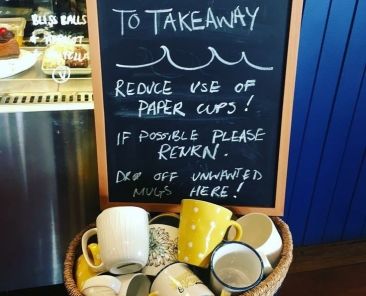 BLISS BALLS
TO TAKEAWAY
REDUCE USE OF
PAPER CUPS!
IF POSSIBLE PLEASE
RENRN.
DROP OFF UNWANTED
MUGS HERE!